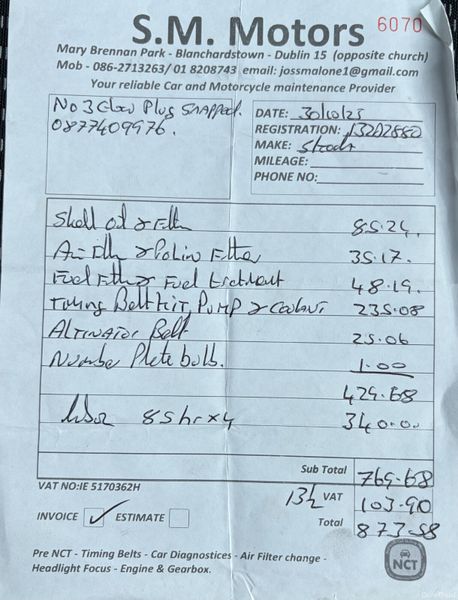 S.M. Motors 6070
Mary Brennan Park - Blanchardstown - Dublin 15 (opposite church)
Mob - 086-2713263/ 01 8208743 email: jossmalone1@gmail.com
Your reliable Car and Motorcycle maintenance Provider
No 3 Glow Plug Snapped.
0877409976.
DATE: 30/10/25
REGISTRATION: 132D2880
MAKE: Skoda
MILEAGE:
PHONE NO:
Shell Oil & Filter 85.24.
Air Filter & Pollen Filter 35.17.
Fuel Filter & Fuel treatment 48.19.
Timing Belt Kit, PUMP & Coolant 235.08
ALTINATOR Belt 25.06
Number Plate bulb. 1.00
429.68
labor 85hr x 4 340.00
Sub Total 769-68
VAT NO:IE 5170362H
13½ VAT 103-90
INVOICE ✓ ESTIMATE
Total 873-58
Pre NCT - Timing Belts - Car Diagnostices - Air Filter change -
Headlight Focus - Engine & Gearbox.
NCT